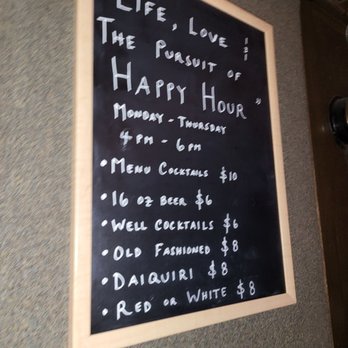 LIFE, LOVE &
THE PURSUIT OF
HAPPY HOUR"
MONDAY - THURSDAY
4 PM - 6 PM
• MENU COCKTAILS $10
• 16 OZ BEER $6
• WELL COCKTAILS $6
• OLD FASHIONED $8
• DAIQUIRI $8
• RED OR WHITE $8